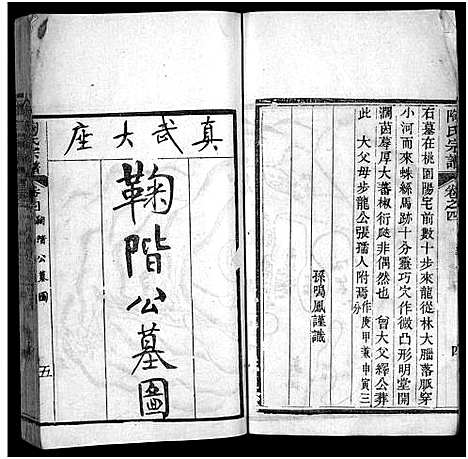 陶氏宗譜
卷之四
四
石墓在桃園陽宅前數十步來龍從林大腦落脈穿
小河而來蛛絲馬跡十分靈巧穴作微凸形明堂開
濶茵蓐厚大蕃椒衍非偶然也 曾大父繹公葬
此 大父母步龍公張孺人附焉作庚甲兼申寅三分
孫鳴鳳謹識
真武大座
鞠階公墓圖
鞠階公墓圖
五